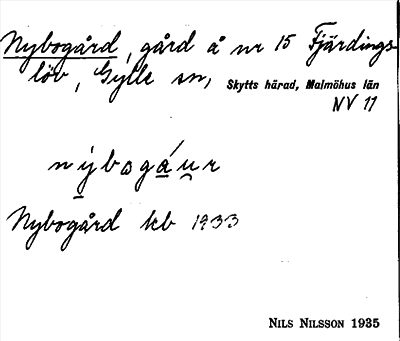 Nybogård, gård å nr 15 Fjärdings-
löv, Gylle sn, Skytts härad, Malmöhus län
NV 11
nybogáu̯r
Nybogård kb 1933
NILS NILSSON 1935